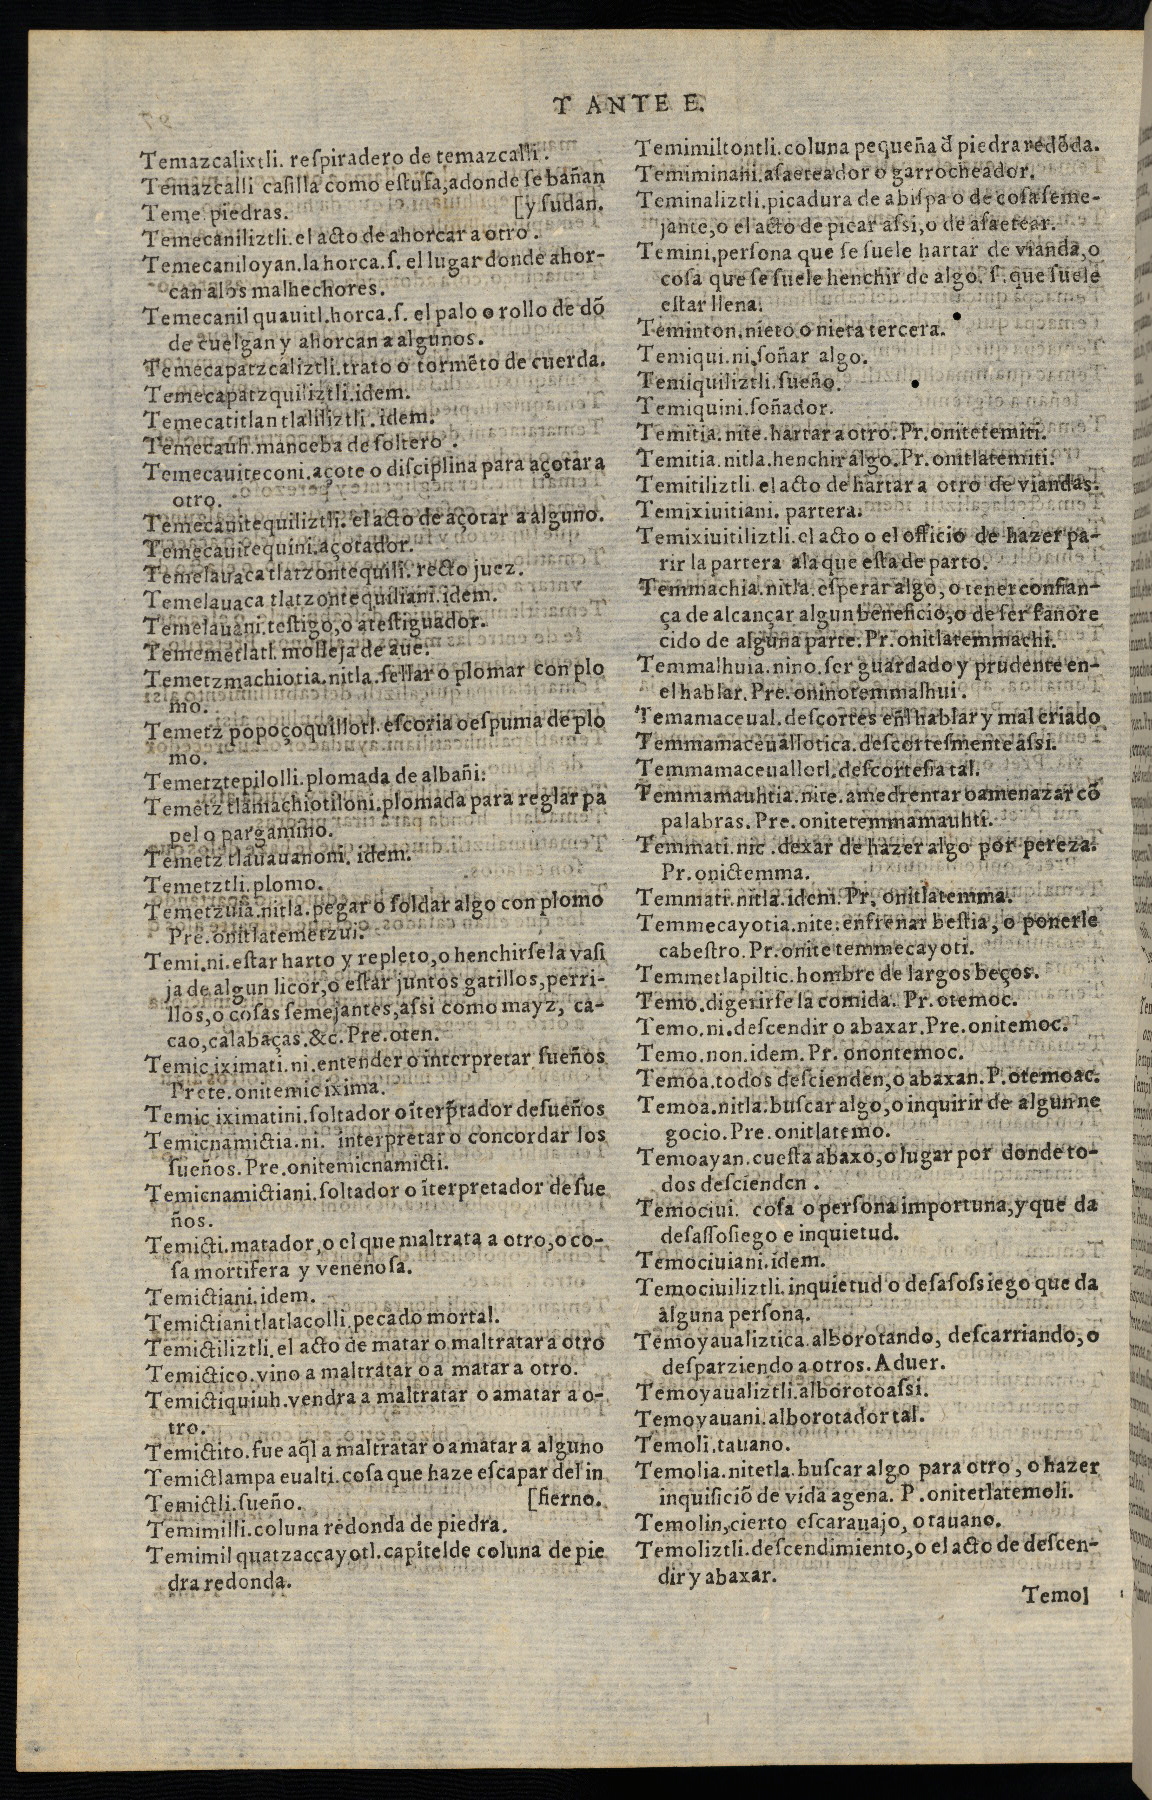 T ANTE E.
Temazcalixtli. reſpiradero de temazcalli.
Temazcalli caſilla como eſtufa,adonde ſe bañan
Teme. piedras. [y ſudan.
Temecaniliztli.el acto de ahorcar a otro.
Temecaniloyan.la horca.ſ. el lugar donde ahor-
can alos malhechores.
Temecanil quauitl.horca.ſ. el palo o rollo de dõ
de cuelgan y ahorcan a algunos.
Temecapatzcaliztli.trato o tormẽto de cuerda.
Temecapatzquiliztli.idem.
Temecatitlan tlaliliztli. idem.
Temecauh.manceba de ſoltero.
Temecauiteconi.açote o diſciplina para açotar a
otro.
Temecauitequiliztli. el acto de açotar a alguno.
Temecauitequini.açotador.
Temelauaca tlatzontequili. recto juez.
Temelauaca tlatzontequiliani.idem.
Temelauani.teſtigo,o ateſtiguador.
Tememetlatl.molleja de aue.
Temetzmachiotia.nitla.ſellar o plomar con plo
mo.
Temetz popoçoquillotl.eſcoria o eſpuma de plo
mo.
Temetztepilolli.plomada de albañi.
Temetz tlamachiotiloni.plomada para reglar pa
pel o pargamino.
Temetz tlauauanoni. idem.
Temetztli.plomo.
Temetzuia.nitla.pegar o ſoldar algo con plomo
Pre.onitlatemetzui.
Temi.ni.eſtar harto y repleto,o henchirſe la vaſi
ja de algun licor,o eſtar juntos gatillos,perri-
llos,o coſas ſemejantes,aſsi como mayz, ca-
cao,calabaças.&c.Pre.oten.
Temic iximati.ni.entender o interpretar ſueños
Prete.onitemic ixima.
Temic iximatini.ſoltador o ĩterp̃tador de ſueños
Temicnamictia.ni. interpretar o concordar los
ſueños.Pre.onitemicnamicti.
Temicnamictiani.ſoltador o ĩterpretador de ſue
ños.
Temicti.matador,o el que maltrata a otro,o co-
ſa mortifera y venenoſa.
Temictiani.idem.
Temictiani tlatlacolli.pecado mortal.
Temictiliztli.el acto de matar o maltratar a otro
Temictico.vino a maltratar o a matar a otro.
Temictiquiuh.vendra a maltratar o amatar a o-
tro.
Temictito.fue aq̃l a maltratar o amatar a alguno
Temictlampa eualti.coſa que haze eſcapar del in
Temictli.ſueño. [fierno.
Temimilli.coluna redonda de piedra.
Temimil quatzaccayotl.capitel de coluna de pie
dra redonda.
Temimiltontli.coluna pequeña d̃ piedra redõda.
Temiminani.aſaeteador o garrocheador.
Teminaliztli.picadura de abiſpa o de coſa ſeme-
jante,o el acto de picar aſsi,o de aſaetear.
Temini,perſona que ſe ſuele hartar de vianda,o
coſa que ſe ſuele henchir de algo. ſ. que ſuele
eſtar llena.
Teminton.nieto o nieta tercera.
Temiqui.ni.ſoñar algo.
Temiquiliztli.ſueño.
Temiquini.ſoñador.
Temitia.nite.hartar a otro.Pr.onitetemiti.
Temitia.nitla.henchir algo.Pr.onitlatemiti.
Temitiliztli.el acto de hartar a otro de viandas.
Temixiuitiani. partera.
Temixiuitiliztli.el acto o el officio de hazer pa-
rir la partera ala que eſta de parto.
Temmachia.nitla.eſperar algo,o tener confian-
ça de alcançar algun beneficio,o de ſer fauore
cido de alguna parte.Pr.onitlatemmachi.
Temmalhuia.nino.ſer guardado y prudente en-
el hablar.Pre.oninotemmalhui.
Temamaceual.deſcortes eñl hablar y mal criado
Temmamaceuallotica.deſcorteſmente aſsi.
Temmamaceuallotl.deſcorteſia tal.
Temmamauhtia.nite.amedrentar o amenazar cõ
palabras.Pre.onitetemmamauhti.
Temmati.nic.dexar de hazer algo por pereza.
Pr.onictemma.
Temmati.nitla.idem.Pr. onitlatemma.
Temmecayotia.nite.enfrenar beſtia, o ponerle
cabeſtro.Pr.onite temmecayoti.
Temmetlapiltic.hombre de largos beços.
Temo.digerirſe la comida. Pr.otemoc.
Temo.ni.deſcendir o abaxar.Pre.onitemoc.
Temo.non.idem.Pr. onontemoc.
Temoa.todos deſcienden,o abaxan.P.otemoac.
Temoa.nitla.buſcar algo,o inquirir de algun ne
gocio.Pre.onitlatemo.
Temoayan.cueſta abaxo,o lugar por donde to-
dos deſcienden.
Temociui. coſa o perſona importuna,y que da
deſaſſoſiego e inquietud.
Temociuiani.idem.
Temociuiliztli.inquietud o deſaſosſiego que da
alguna perſona.
Temoyaualiztica.alborotando, deſcarriando,o
deſparziendo a otros.Aduer.
Temoyaualiztli.alboroto aſsi.
Temoyauani.alborotador tal.
Temoli.tauano.
Temolia.nitetla.buſcar algo para otro, o hazer
inquiſiciõ de vida agena. P.onitetlatemoli.
Temolin,cierto eſcarauajo, o tauano.
Temoliztli.deſcendimiento,o el acto de deſcen-
dir y abaxar.
Temol